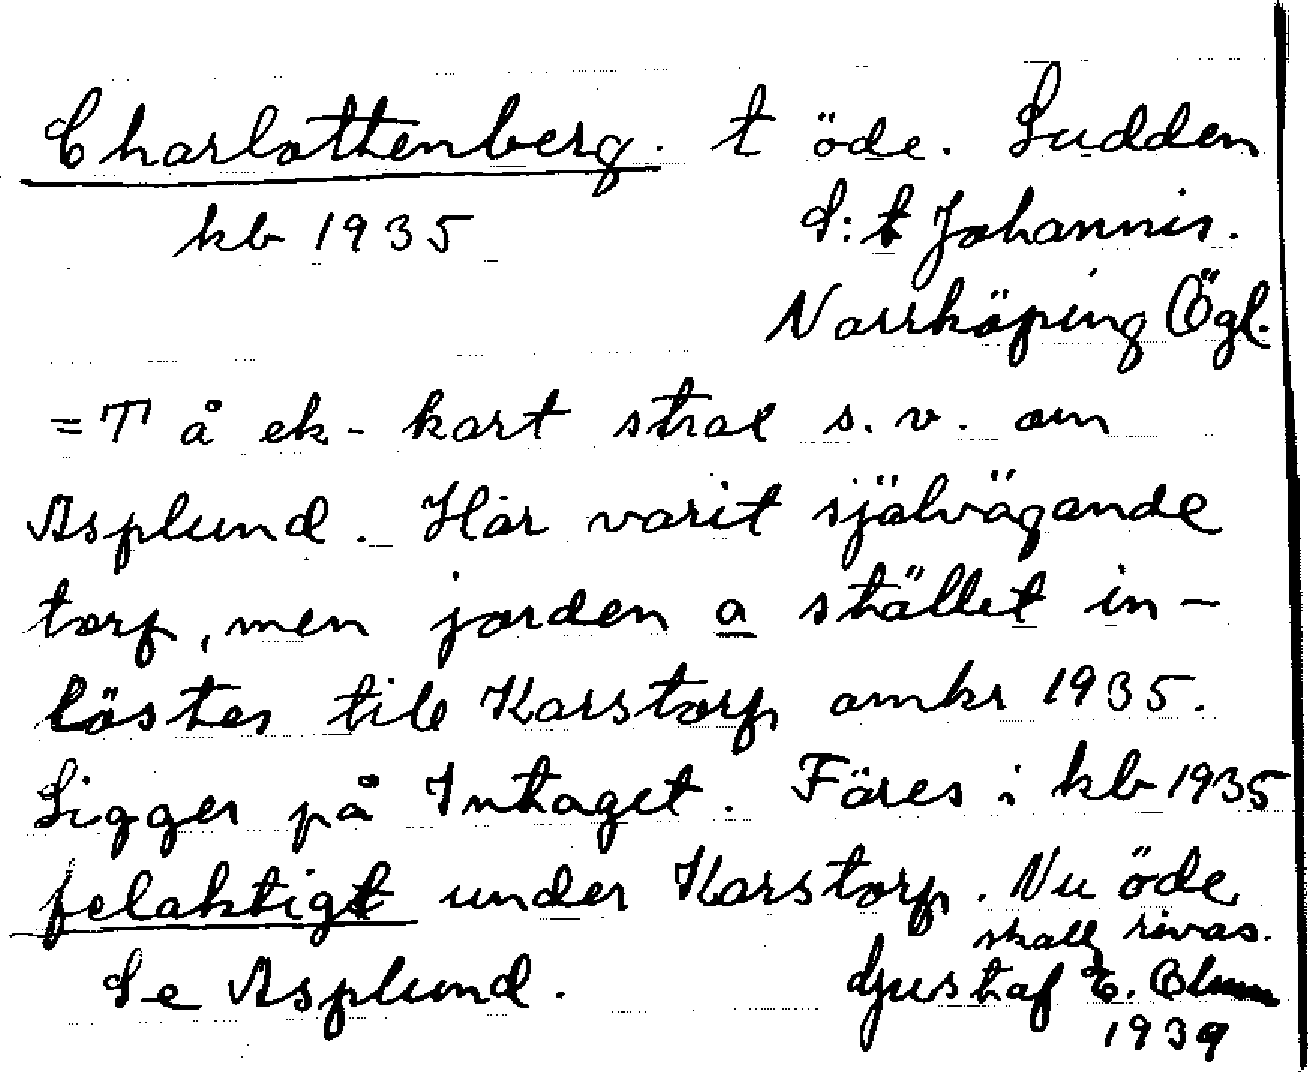 Charlottenberg. t öde. Sudden
kb 1935 S:t Johannis.
Norrköping Ögl.
= T å ek-kart strax s.v. om
Asplund. Har varit självägande
torp, men jorden a stället in-
löstes till Karstorp omkr 1935.
Ligger på Intaget. Föres i kb 1935
felaktigt under Karstorp. Nu öde,
skall rivas.
Se Asplund. Gustaf E. Blum
1939